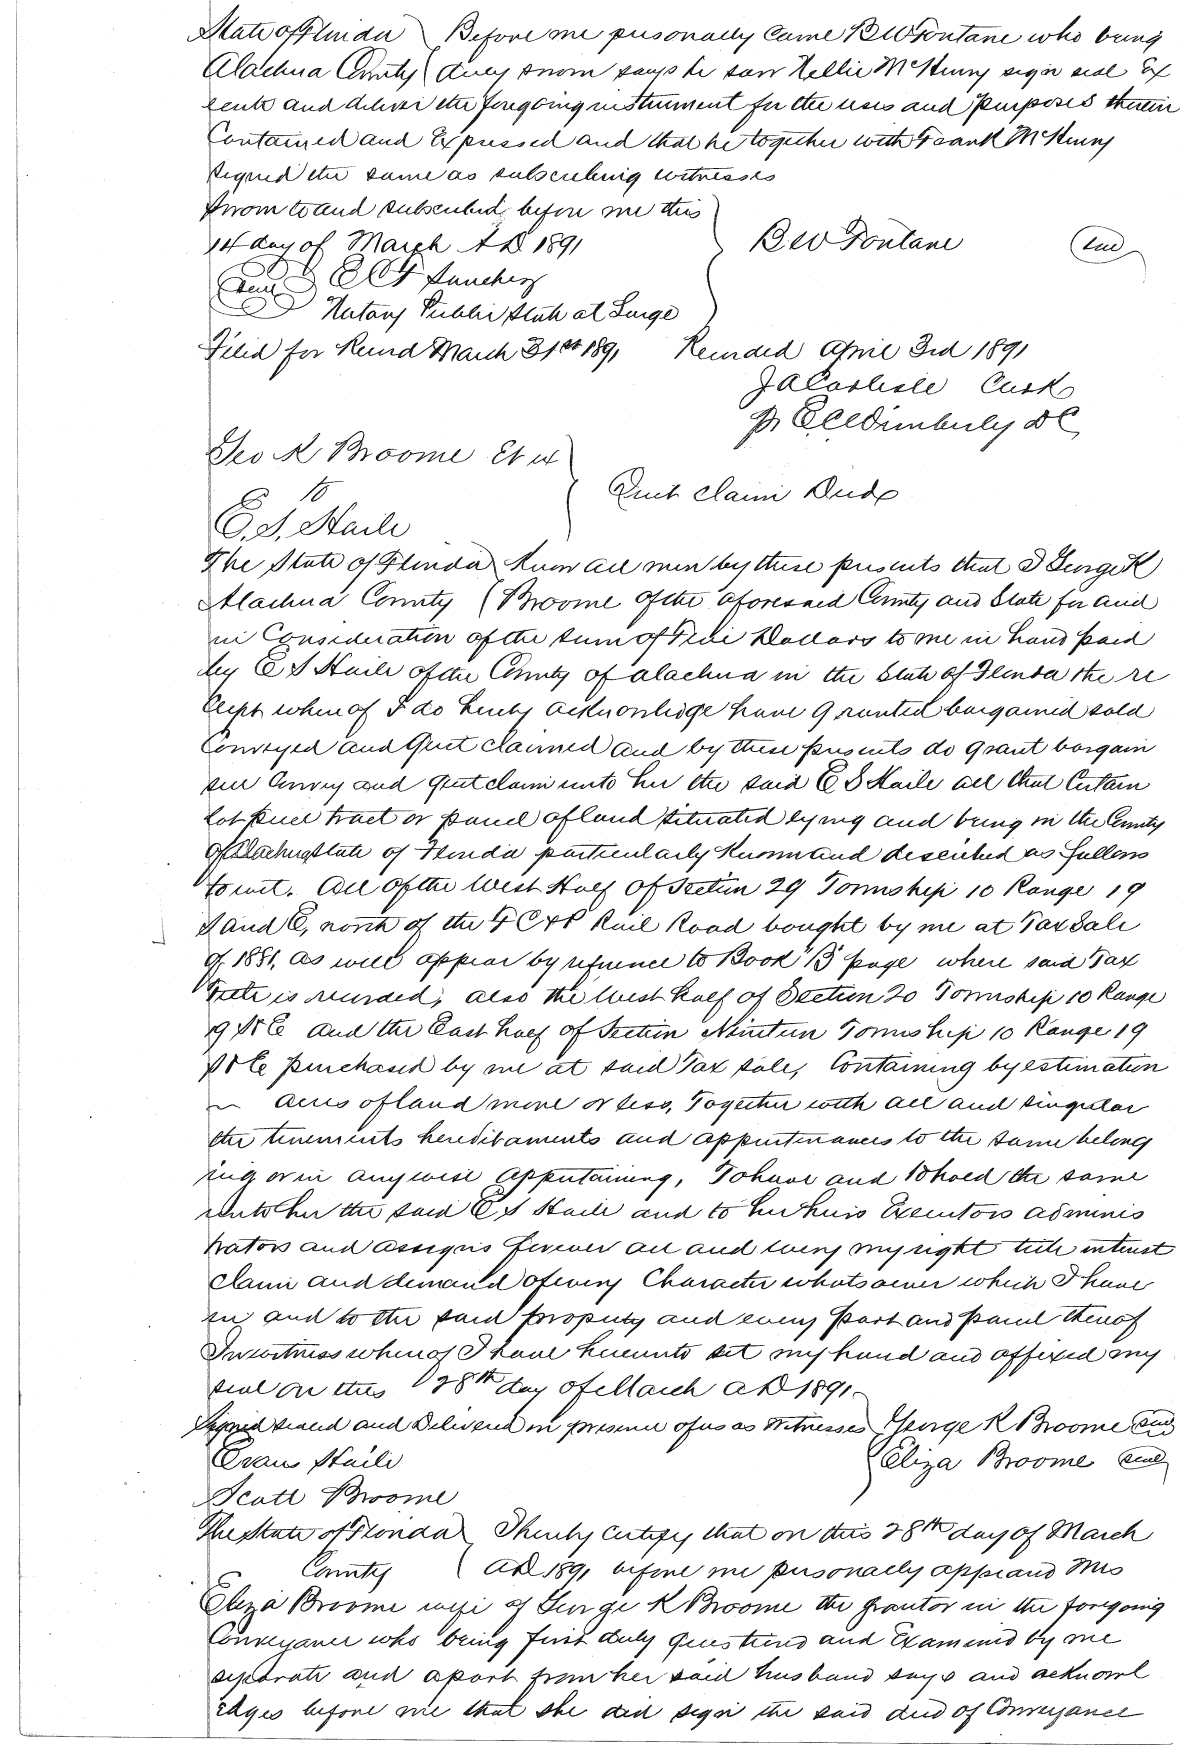 State of Florida Before me personally came B W Fontane who being
Alachua County duly sworn says he saw Nellie McHenry sign seal Ex
ecute and deliver the foregoing instrument for the uses and purposes therein
Contained and Expressed and that he together with Frank McHenry
signed the same as subscribing witnesses
Sworn to and subscribed before me this
14 day of March A D 1891 B W Fontane Seal
Seal E C F Sanchez
Notary Public State at Large
Filed for Record March 31st 1891 Recorded April 3rd 1891
J A Carlisle Clerk
pr Wimberly D C
Geo K Broome Et ux
to Quit Claim Deed
E. S. Haile
The State of Florida Know all men by these presents that I George K
Alachua County Broome of the aforesaid County and State for and
in Consideration of the sum of Five Dollars to me in hand paid
by E S Haile of the County of Alachua in the State of Florida the re
ceipt whereof I do hereby acknowledge have granted bargained sold
Conveyed and Quit claimed and by these presents do grant bargain
sell Convey and Quit claim unto her the said E S Haile all that Certain
lot piece tract or parcel of land situated lying and being in the County
of Alachua State of Florida particularly Known and described as follows
towit. All of the West Half of Section 29 Township 10 Range 19
S and E, north of the F C & P Rail Road bought by me at Tax Sale
of 1881, as will appear by refrence to Book "B" page where said Tax
Title is recorded; also the West half of Section 20 Township 10 Range
19 S & E and the East half of Section Nineteen Township 10 Range 19
S & E purchased by me at said Tax sale, Containing by estimation
acres of land more or less, Together with all and singular
the tenements hereditaments and appurtenances to the same belong
ing or in anywise appertaining, To have and to hold the same
unto her the said E S Haile and to her heirs Executors adminis
trators and assigns forever all and every my right title interest
claim and demand of every Character whatsoever which I have
in and to the said property and every part and parcel thereof
In witness whereof I have hereunto set my hand and affixed my
seal on this 28th day of March A D 1891.
Signed sealed and Delivered in presence of us as Witnesses George K Broome Seal
Evans Haile Eliza Broome Seal
Scott Broome
The State of Florida I hereby certify that on this 28th day of March
County AD 1891 before me personally appeard Mrs
Eliza Broome wife of George K Broome the grantor in the foregoing
Conveyance who being first duly questiond and Examined by me
separate and apart from her said husband says and acknowl
edges before me that she did sign the said deed of Conveyance